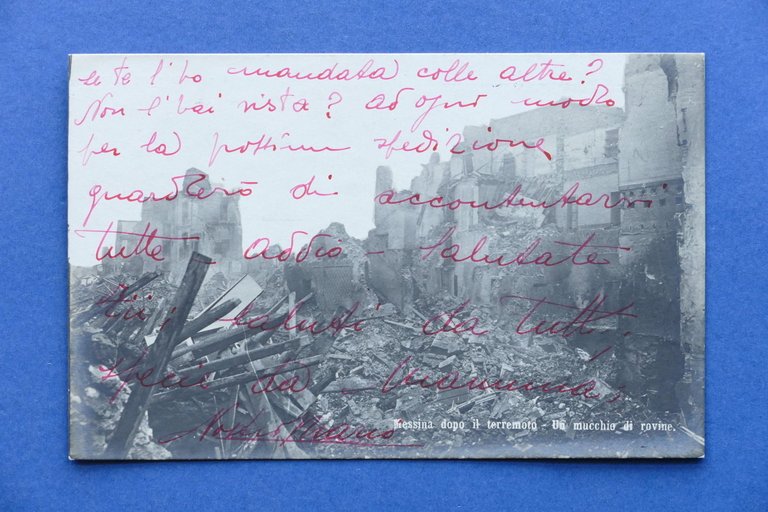 se te l'ho mandata colle altre?
Non l'hai vista? Ad ogni modo
per la possima spedizione
guarderò di accontentarvi
tutte - Addio - Salutate
zii; saluti da tutti.
specie da mamma,
Messina dopo il terremoto - Un mucchio di rovine.